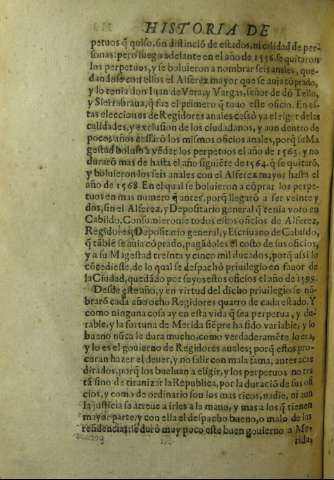 HISTORIA DE
petuos q̃ quiso, sin distinció de estados, ni calidad de per-
sonas: pero luego adelante en el año de 1556. se quitaron
los perpetuos, y se boluieron a nombrar seis anales, que-
dandose con ellos el Alferez mayor que se auia cóprado,
y lo tenia don Iuan de Vera, y Vargas, señor de dō Tello,
y Sierrabraua, q̃ fue el primero q̃ tuuo este oficio. En es-
tas elecciones de Regidores anales cessò ya el rigor de las
calidades, y exclusion de los ciudadanos, y aun dentro de
pocos años cessarō los mismos oficios anales, porq̃ su Ma-
gestad boluio a vēder los perpetuos el año de 1563. y no
duraró mas de hasta el año siguiēte de 1564. q̃ se quitaró,
y boluieron los seis anales con el Alferez mayor hasta el
año de 1568. En el qual se boluieron a cóprar los perpe-
tuos en mas numero q̃ antes, porq̃ llegaró a ser veinte y
dos, sin el Alferez, y Depositario general q̃ tenia voto en
Cabildo. Consumieronse todos estos oficios de Alferez,
Regidores, Depositario general, y Escriuano de Cabildo,
q̃ tābiē se auia cóprado, pagādoles el costo de sus oficios,
y a su Magestad treinta y cinco mil ducados, porq̃ assi lo
cōcediesse, de lo qual se despachò priuilegio en fauor de
la Ciudad, quedādo por suyos estos oficios el año de 1595.
Desde este año, y en virtud del dicho priuilegio se nō-
braró cada año ocho Regidores quatro de cada estado. Y
como ninguna cosa ay en esta vida q̃ sea perpetua, y du-
rable, y la fortuna de Merida siēpre ha sido variable, y lo
bueno nūca le dura mucho, como verdaderamēte lo era,
y lo es el gouierno de Regidores anales; porq̃ estos pro-
curan hazer el deuer, y no salir con mala fama, antes acre
ditados, porq̃ los bueluan a eligir, y los perpetuos no tra
tā sino de tiranizar la Republica, por la duracion de sus ofi
cios, y como de ordinario son los mas ricos, nadie, ni aun
la justicia se atreue a irles a la mano, y mas a los q̃ tienen
mayor parte, y con ella el despacho bueno, o malo de las
residencias: le durò muy poco este buen gouierno a Me-
rida,